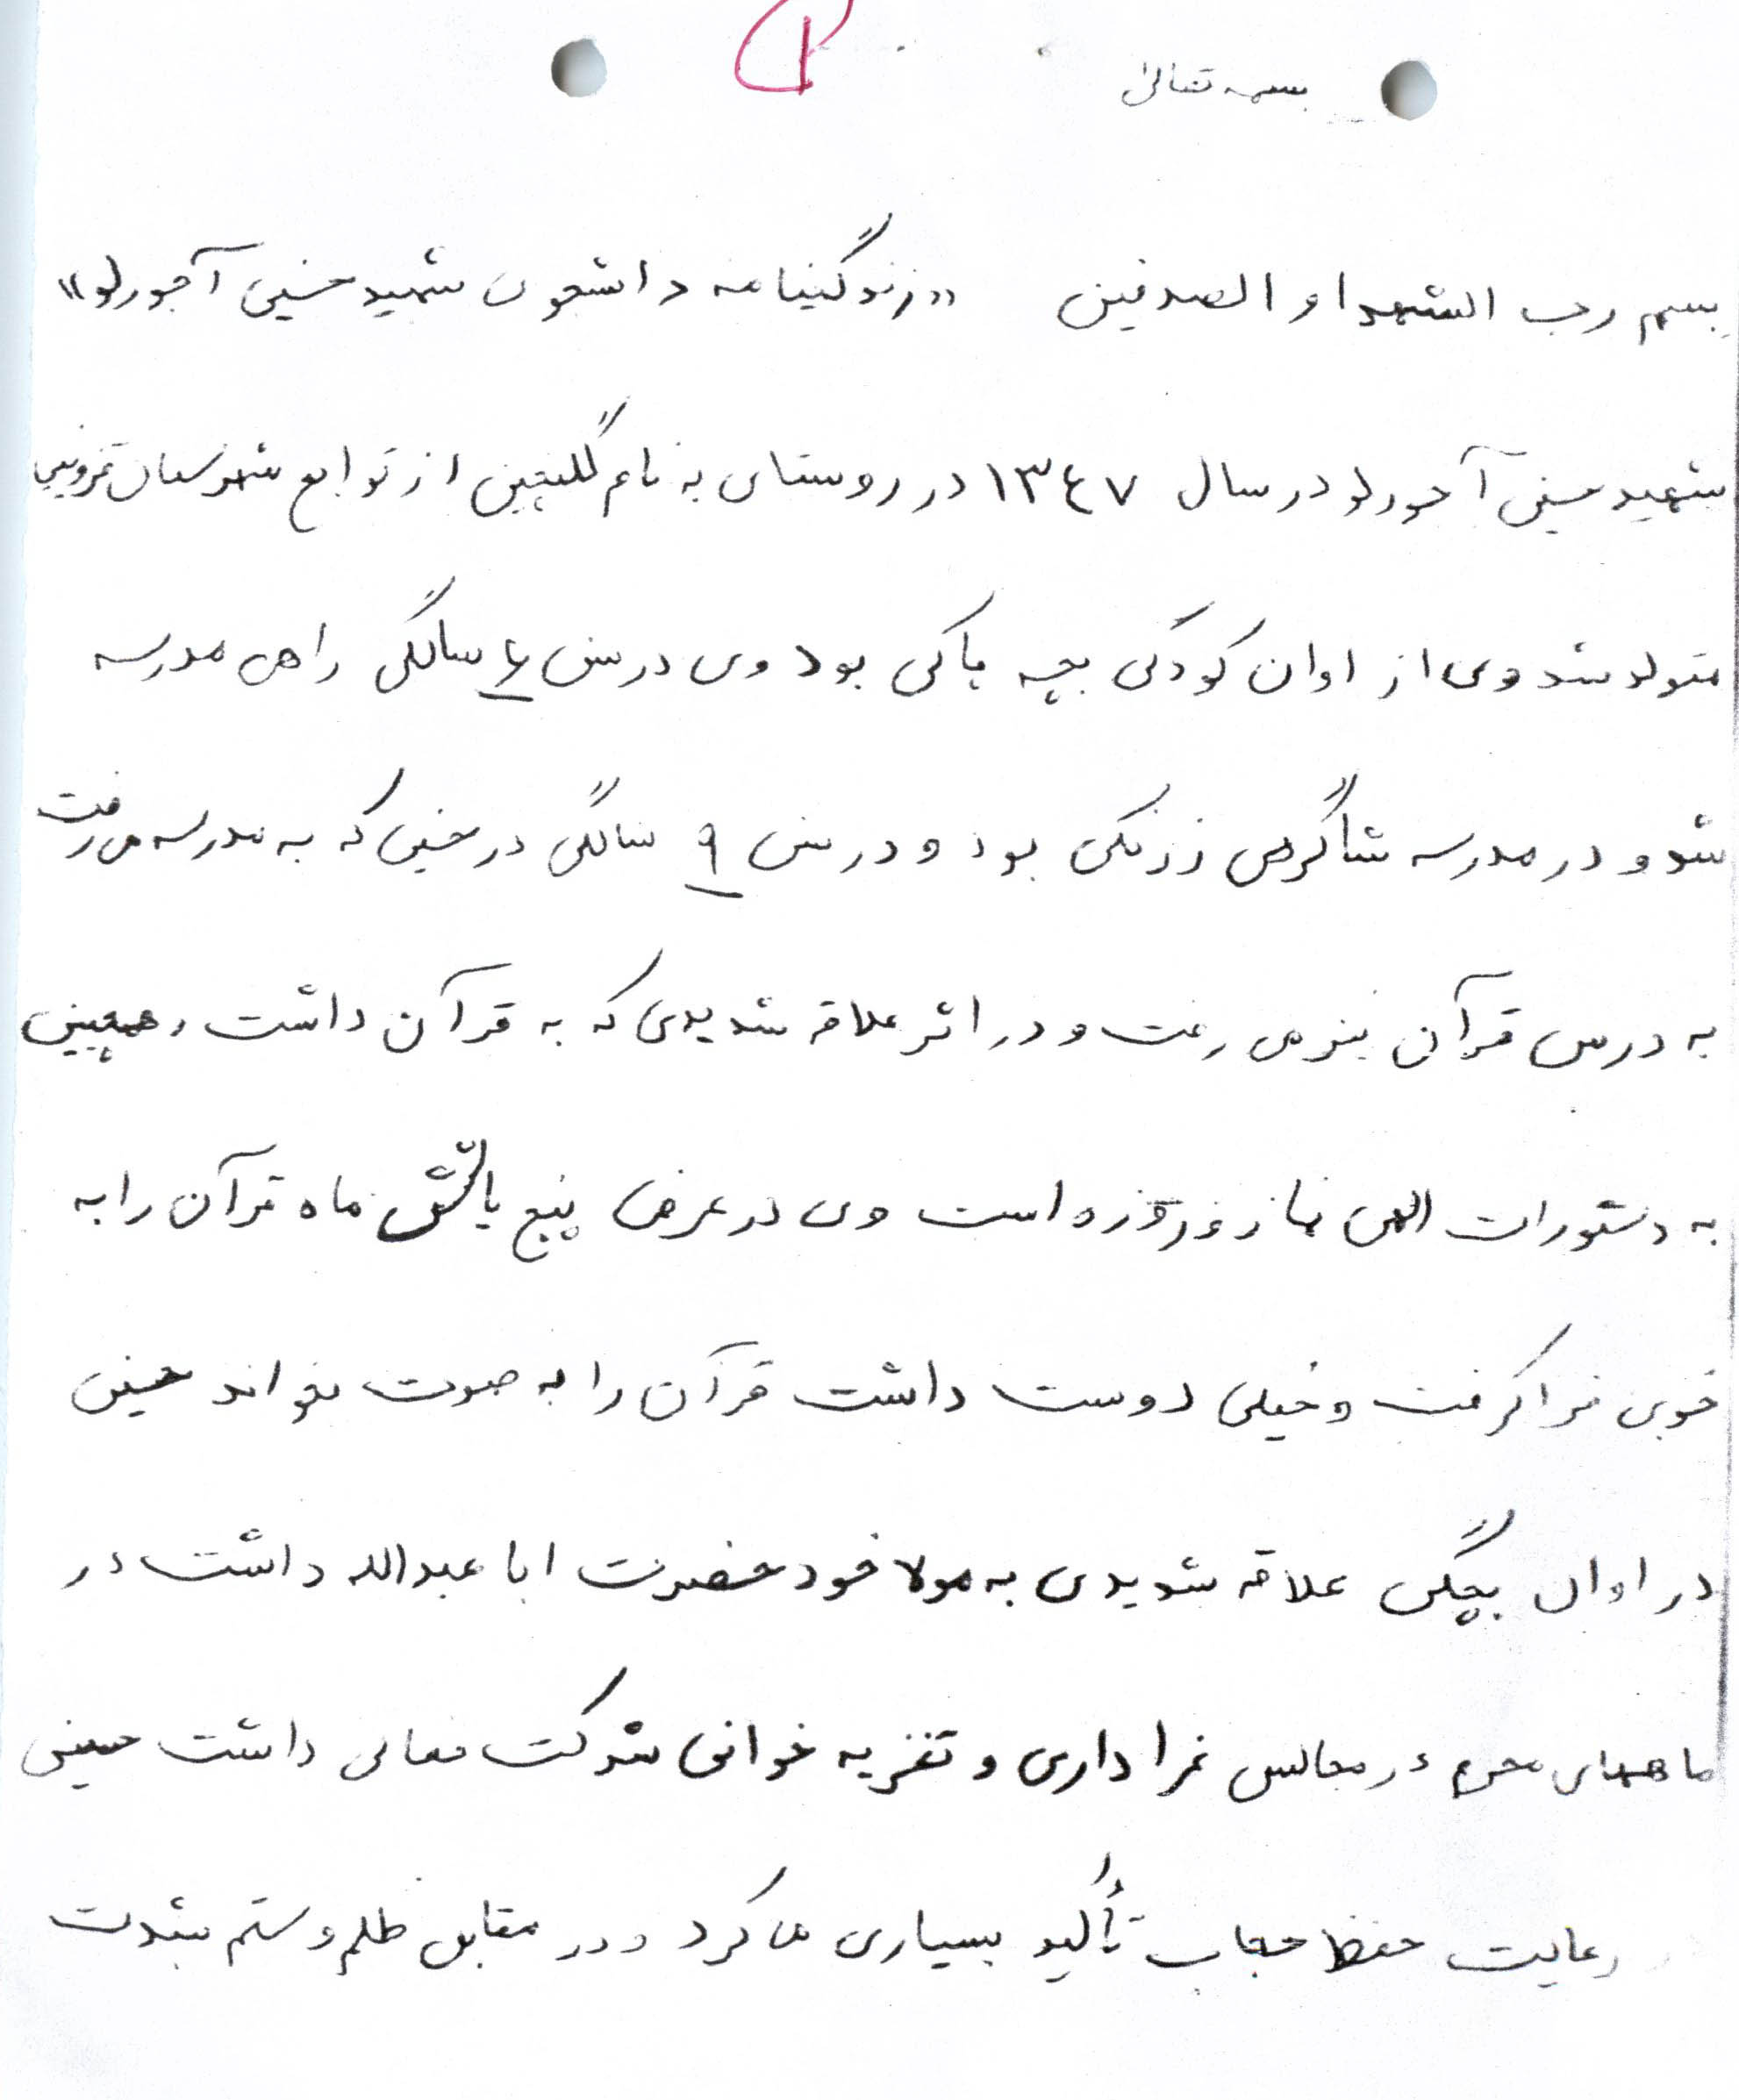 ۱
بسمه تعالی
بسم رب الشهدا و الصدقین «زندگینامه دانشجوی شهید حسین آجورلو»
شهید حسین آجورلو در سال ۱۳۴۷ در روستای به نام گلنچین از توابع شهرستان قزوین
متولد شد وی از اوان کودکی بچه پاکی بود وی در سن ۶ سالگی راهی مدرسه
شد و در مدرسه شاگردی زرنگی بود و در سن ۹ سالگی در حینی که به مدرسه می رفت
به درس قرآن نیز می رفت و در اثر علاقه شدیدی که به قرآن داشت و همچنین
به دستورات الهی نماز و روزه است وی در عرض پنج یا شش ماه قرآن را به
خوبی فرا گرفت و خیلی دوست داشت قرآن را به صوت بخواند حسین
در اوان بچگی علاقه شدیدی به مولا خود حضرت ابا عبدالله داشت در
ماههای محرم در مجالس عزاداری و تعزیه خوانی شرکت فعالی داشت حسین
رعایت حفظ حجاب تأکید بسیاری می کرد و در مقابل ظلم و ستم بشدت